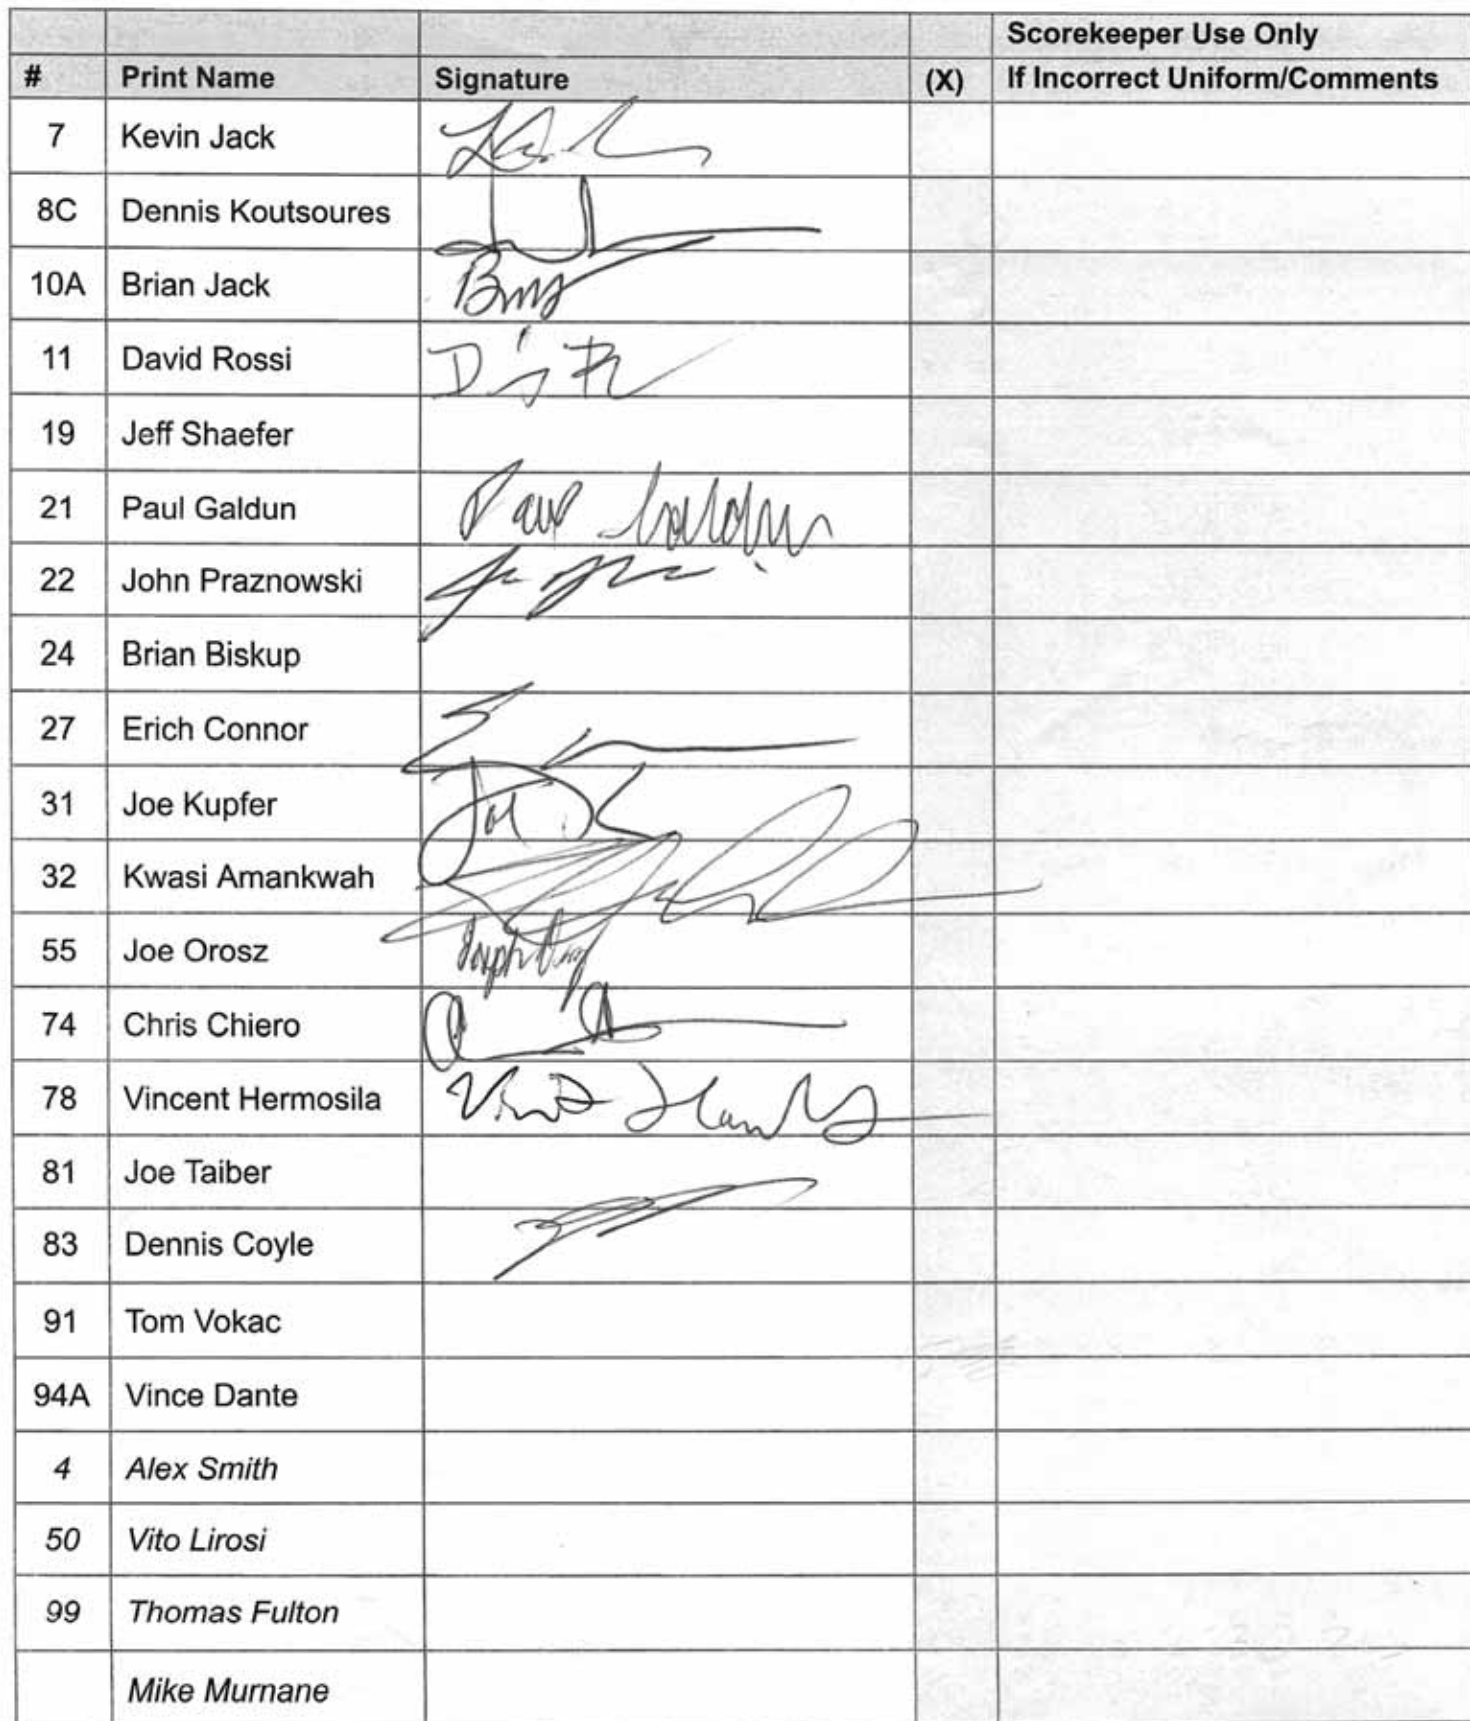 Scorekeeper Use Only
# Print Name Signature (X) If Incorrect Uniform/Comments
7 Kevin Jack
8C Dennis Koutsoures
10A Brian Jack
11 David Rossi
19 Jeff Shaefer
21 Paul Galdun Paul Galdun
22 John Praznowski
24 Brian Biskup
27 Erich Connor
31 Joe Kupfer Joe
32 Kwasi Amankwah
55 Joe Orosz Joseph Orosz
74 Chris Chiero
78 Vincent Hermosila
81 Joe Taiber
83 Dennis Coyle
91 Tom Vokac
94A Vince Dante
4 Alex Smith
50 Vito Lirosi
99 Thomas Fulton
Mike Murnane